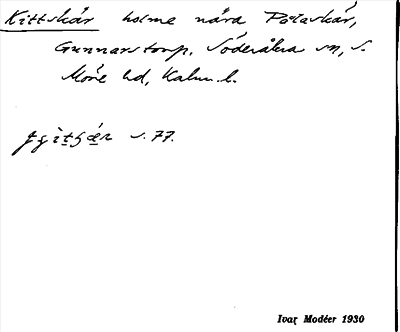 Kittskär holme nära Potaskär,
Gunnarstorp, Söderåkra sn, S.
Möre hd, Kalm. l.
s. 77.
Ivar Modéer 1930